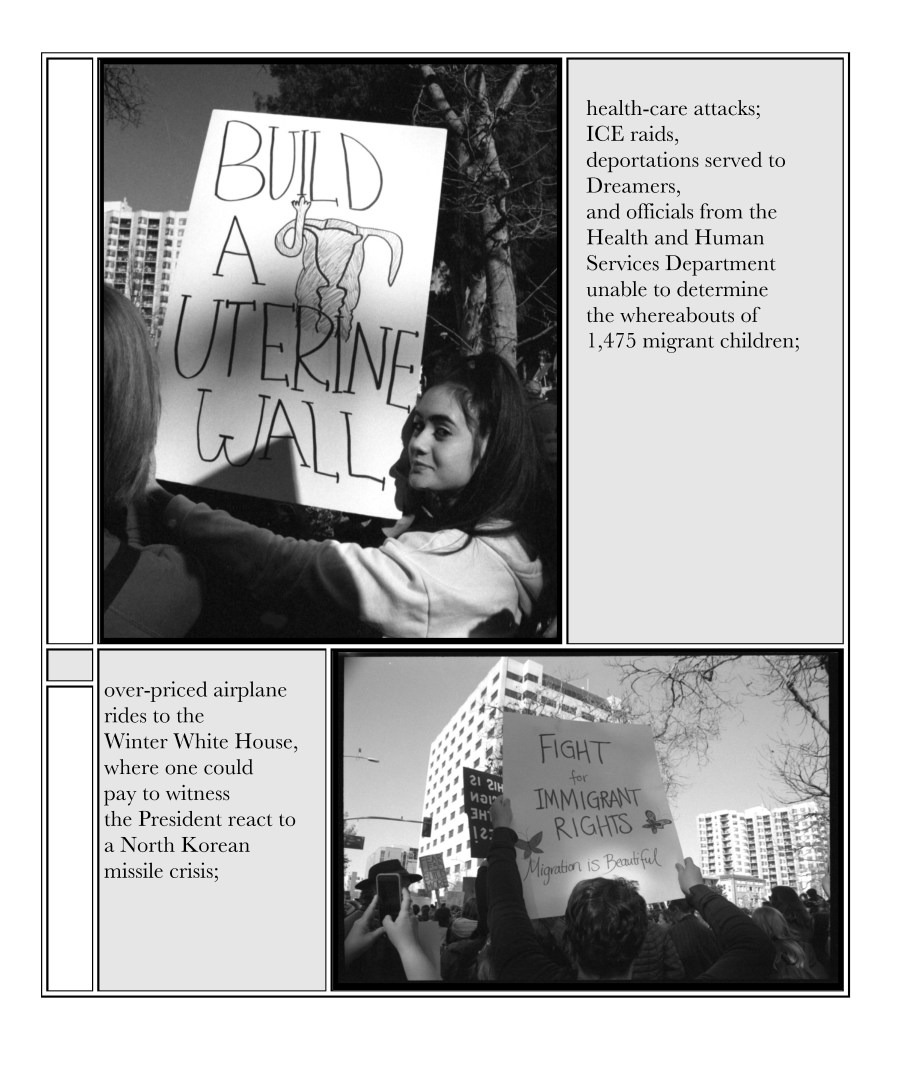 BUILD
A
UTERINE
WALL
health-care attacks;
ICE raids,
deportations served to
Dreamers,
and officials from the
Health and Human
Services Department
unable to determine
the whereabouts of
1,475 migrant children;
over-priced airplane
rides to the
Winter White House,
where one could
pay to witness
the President react to
a North Korean
missile crisis;
THIS IS
SIGN
THE
FIGHT
for
IMMIGRANT
RIGHTS
Migration is Beautiful